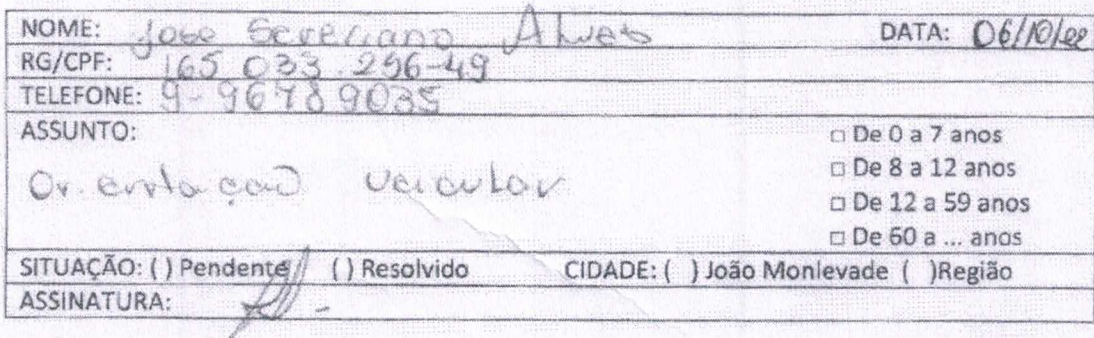 NOME: Jose Severiano Alves DATA: 06/10/22
RG/CPF: 165 033.296-49
TELEFONE: 9-96789035
ASSUNTO:
□ De 0 a 7 anos
□ De 8 a 12 anos
Orientação veicular
□ De 12 a 59 anos
□ De 60 a ... anos
SITUAÇÃO: ( ) Pendente ( ) Resolvido CIDADE: ( ) João Monlevade ( )Região
ASSINATURA: